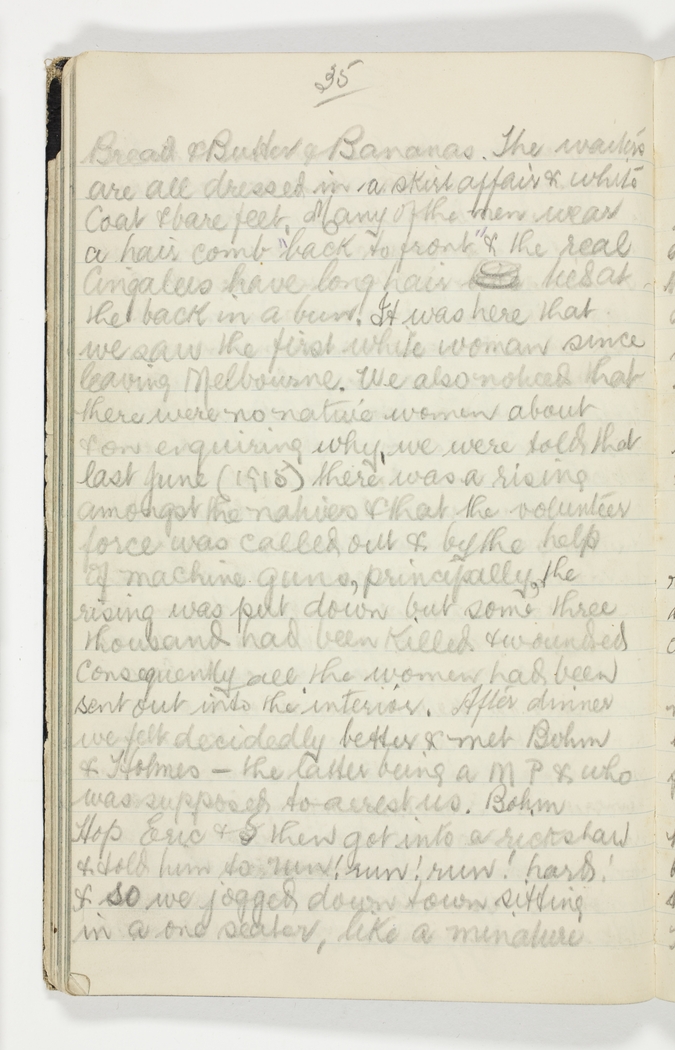 35
Bread & Butter & Bananas. The waiters
are all dressed in a skirt affair & white
Coat & bare feet. Many of the men wear
a hair comb "back to front" & the real
Cingalees have long hair tied at
the back in a bun. It was here that
we saw the first white woman since
leaving Melbourne. We also noticed that
there were no native women about
& on enquiring why, we were told that
last June (1915) there was a rising
amongst the natives & that the volunteer
force was called out & by the help
of machine guns, principally, the
rising was put down but some three
thousand had been killed & wounded
Consequently all the women had been
sent out into the interior. After dinner
we felt decidedly better & met Bohm
& Holmes - the latter being a M P & who
was supposed to arrest us. Bohm
Hop Eric & I then got into a rickshaw
& told him to run! run! run! hard!
& so we jogged down town sitting
in a one seater, like a minature